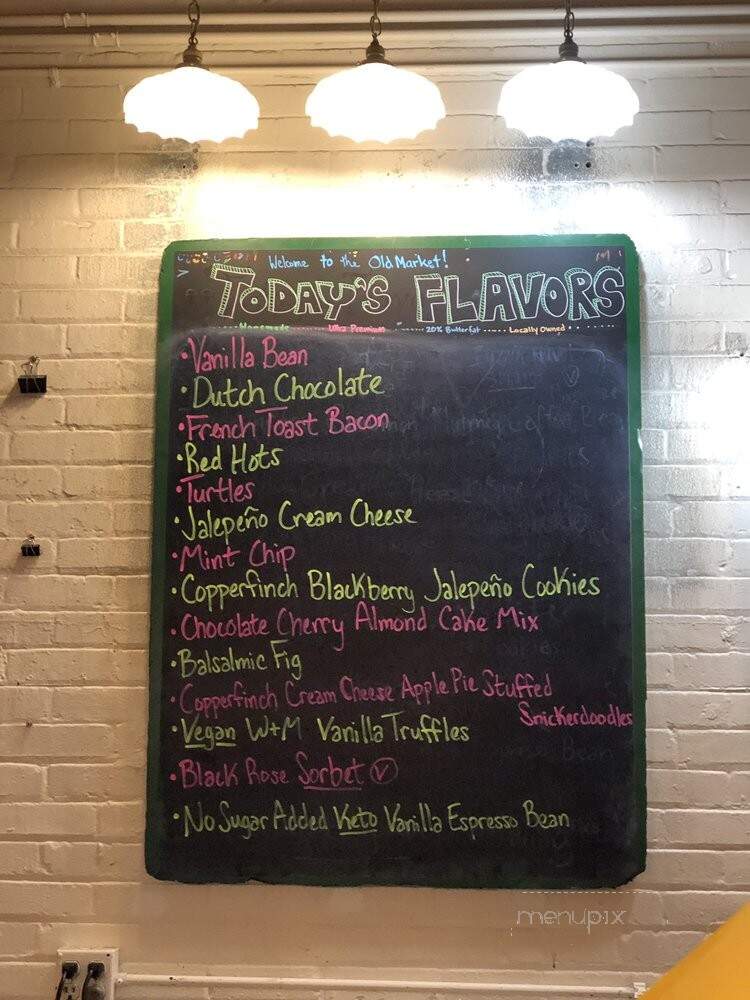 Welcome to the Old Market!
TODAY'S FLAVORS
Homemade ..... Ultra Premium ..... 20% Butterfat ..... Locally Owned
•Vanilla Bean
•Dutch Chocolate
•French Toast Bacon
•Red Hots
•Turtles
•Jalepeño Cream Cheese
•Mint Chip
•Copperfinch Blackberry Jalepeño Cookies
•Chocolate Cherry Almond Cake Mix
•Balsalmic Fig
•Copperfinch Cream Cheese Apple Pie Stuffed
Snickerdoodles
•Vegan W+M Vanilla Truffles
•Black Rose Sorbet Ⓥ
•No Sugar Added Keto Vanilla Espresso Bean
menupix